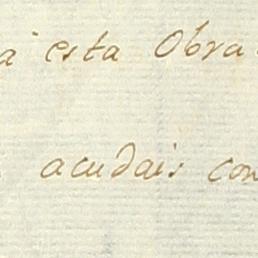 a esta Obra
acudais con